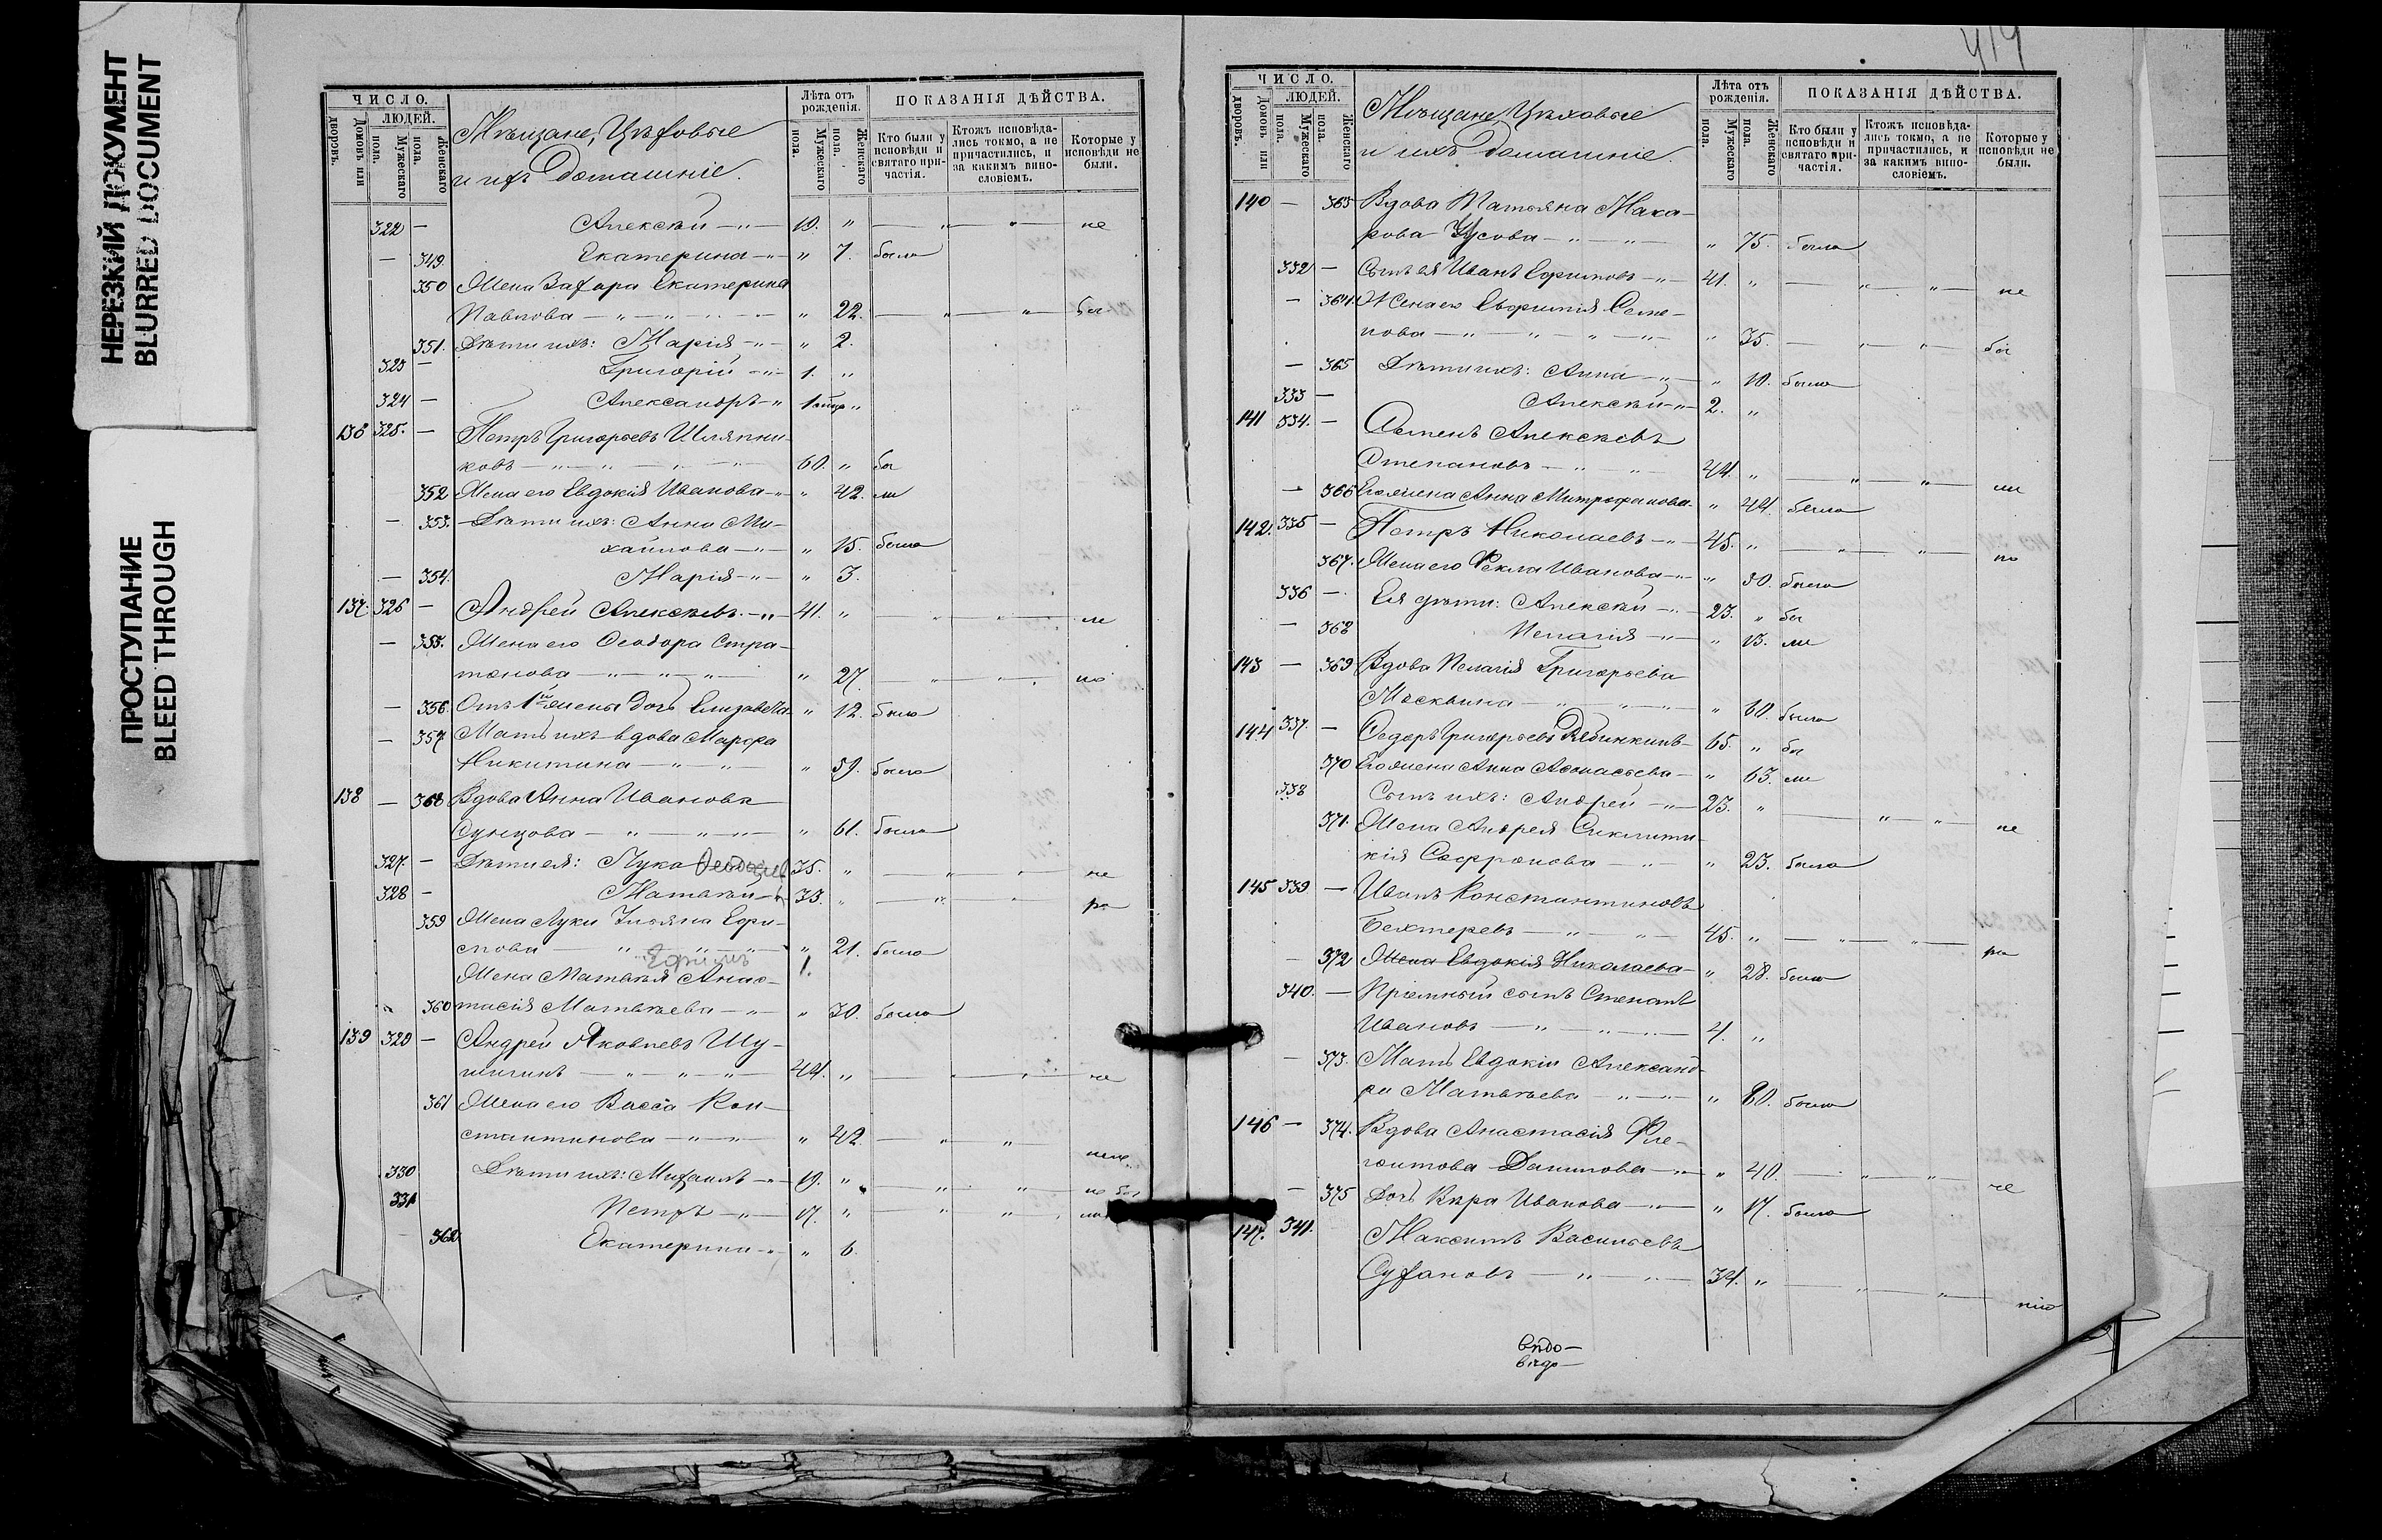 НЕРЕЗКИЙ ДОКУМЕНТ
BLURRED DOCUMENT
ПРОСТУПАНИЕ
BLEED THROUGH
ЧИСЛО.
ЛЮДЕЙ.
Домовъ или дворовъ.
Мужескаго пола.
Женскаго пола.
Мѣщане, Цѣховые
и ихъ Домашніе.
Лѣта отъ рожденія.
Мужескаго пола.
Женскаго пола.
ПОКАЗАНІЯ ДѢЙСТВА.
Кто были у исповѣди и святаго причастія.
Ктожъ исповѣдались токмо, а не причастились, и за какимъ винословіемъ.
Которые у исповѣди не были.
322 — Алексѣй — " — 19. " — " — " — не
— 349 Екатерина — " " 7. была
350 Жена Захара Екатерина
Павлова — " — " 22. — " — " — бы
351. Дѣти ихъ: Марія — " — " 2.
323 — Григорій — " — 1. "
324 — Александръ — "
136 325. — Петръ Григорьевъ Шляпни-
ковъ — " — " — 60. " бы
352 Жена его Евдокія Иванова — " " 42. ли
— 353. Дѣти ихъ: Анна Ми-
хайлова — " — " 15. была
— 354. Марія — " — " 3.
137. 326 — Андрей Алексѣевъ — " — 41. " — " — " — не
— 355. Жена его Ѳеодора Стра-
тонова — " — " — " 27. " — " — не
— 356 Отъ 1й жены дочь Елизавета " 12. была
— 357 Мать ихъ вдова Марѳа
Никитина — " — " — " 59. была
138 — 358 Вдова Анна Иванова
Сунцова — " — " — " 61. была
327 — Дѣти ея: Лука 35. " — " — " — не
328 — Матвѣй — 33. " — " — "
359 Жена Луки Ульяна Ефи-
мова — " — " — " 21. была
Ефимъ 1.
Жена Матвѣя Анас-
360 тасія Матвѣева — " — " 30. была
139 329 — Андрей Яковлевъ Шу-
шигинъ — " — " — 44. " — " — " — не
361 Жена его Васса Кон-
стантинова — " — " — " 42. — " — "
330 Дѣти ихъ: Михаилъ — " 19. " — " — " — не бы
331 Петръ — " — 17. " — " — " — ли
362 Екатерина — " " 6.
414
ЧИСЛО.
ЛЮДЕЙ.
Домовъ или дворовъ.
Мужескаго пола.
Женскаго пола.
Мѣщане, Цѣховые
и ихъ домашніе.
Лѣта отъ рожденія.
Мужескаго пола.
Женскаго пола.
ПОКАЗАНІЯ ДѢЙСТВА.
Кто были у исповѣди и святаго причастія.
Ктожъ исповѣдались токмо, а не причастились, и за какимъ винословіемъ.
Которые у исповѣди не были.
140 — 363 Вдова Татьяна Мака-
рова Усова — " — " — " 75. была
332 — Сынъ ея Иванъ Ефимовъ — " — 41. " — " — " — не
— 364. Жена его Евфимія Семе-
нова — " — " — " — " 35. — " — " — бы
— 365 Дѣти ихъ: Анна — " — " 10. была
333 — Алексѣй — " — 2. "
141 334. — Семенъ Алексѣевъ
Степановъ — " — " 44. " — " — " — ли
— 366 Его жена Анна Митрофанова " 44. была
142. 335 — Петръ Николаевъ — " — 45. " — " — " — не
367. Жена его Ѳекла Иванова — " — " 50. была
336 — Ея дѣти: Алексѣй — " 23. " бы
— 368 Пелагія — " — " 13. ли
143 — 369 Вдова Пелагія Григорьева
Москвина — " — " — " 60. была
144 337. — Ѳедоръ Григорьевъ Рябинкинъ — 65. " бы
370 Его жена Анна Аѳанасьева — " 63. ли
338 Сынъ ихъ: Андрей — " — 23. " — " — " — не
371. Жена Андрея Синклити-
кія Софронова — " — " 23. была
145 339 — Иванъ Константиновъ
Бехтеревъ — " — " 45. " — " — "
— 372 Жена Евдокія Николаева — " 28. была
340. — Пріемный сынъ Степанъ
Ивановъ — " — " — 4. "
— 373. Мать Евдокіи Александ-
ра Матвѣева — " — " 80. была
146 — 374. Вдова Анастасія Фле-
гонтова Данилова — " — " 40. — " — " — не
— 375 Дочь Вѣра Иванова — " — " 17. была
147. 341. Максимъ Васильевъ
Сухановъ — " — " 34. " — " — "